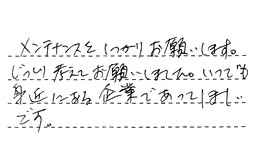 メンテナンスをしっかりお願いします。
じっくり考えてお願いしました。いつでも
身近にある企業であってほしい
です。